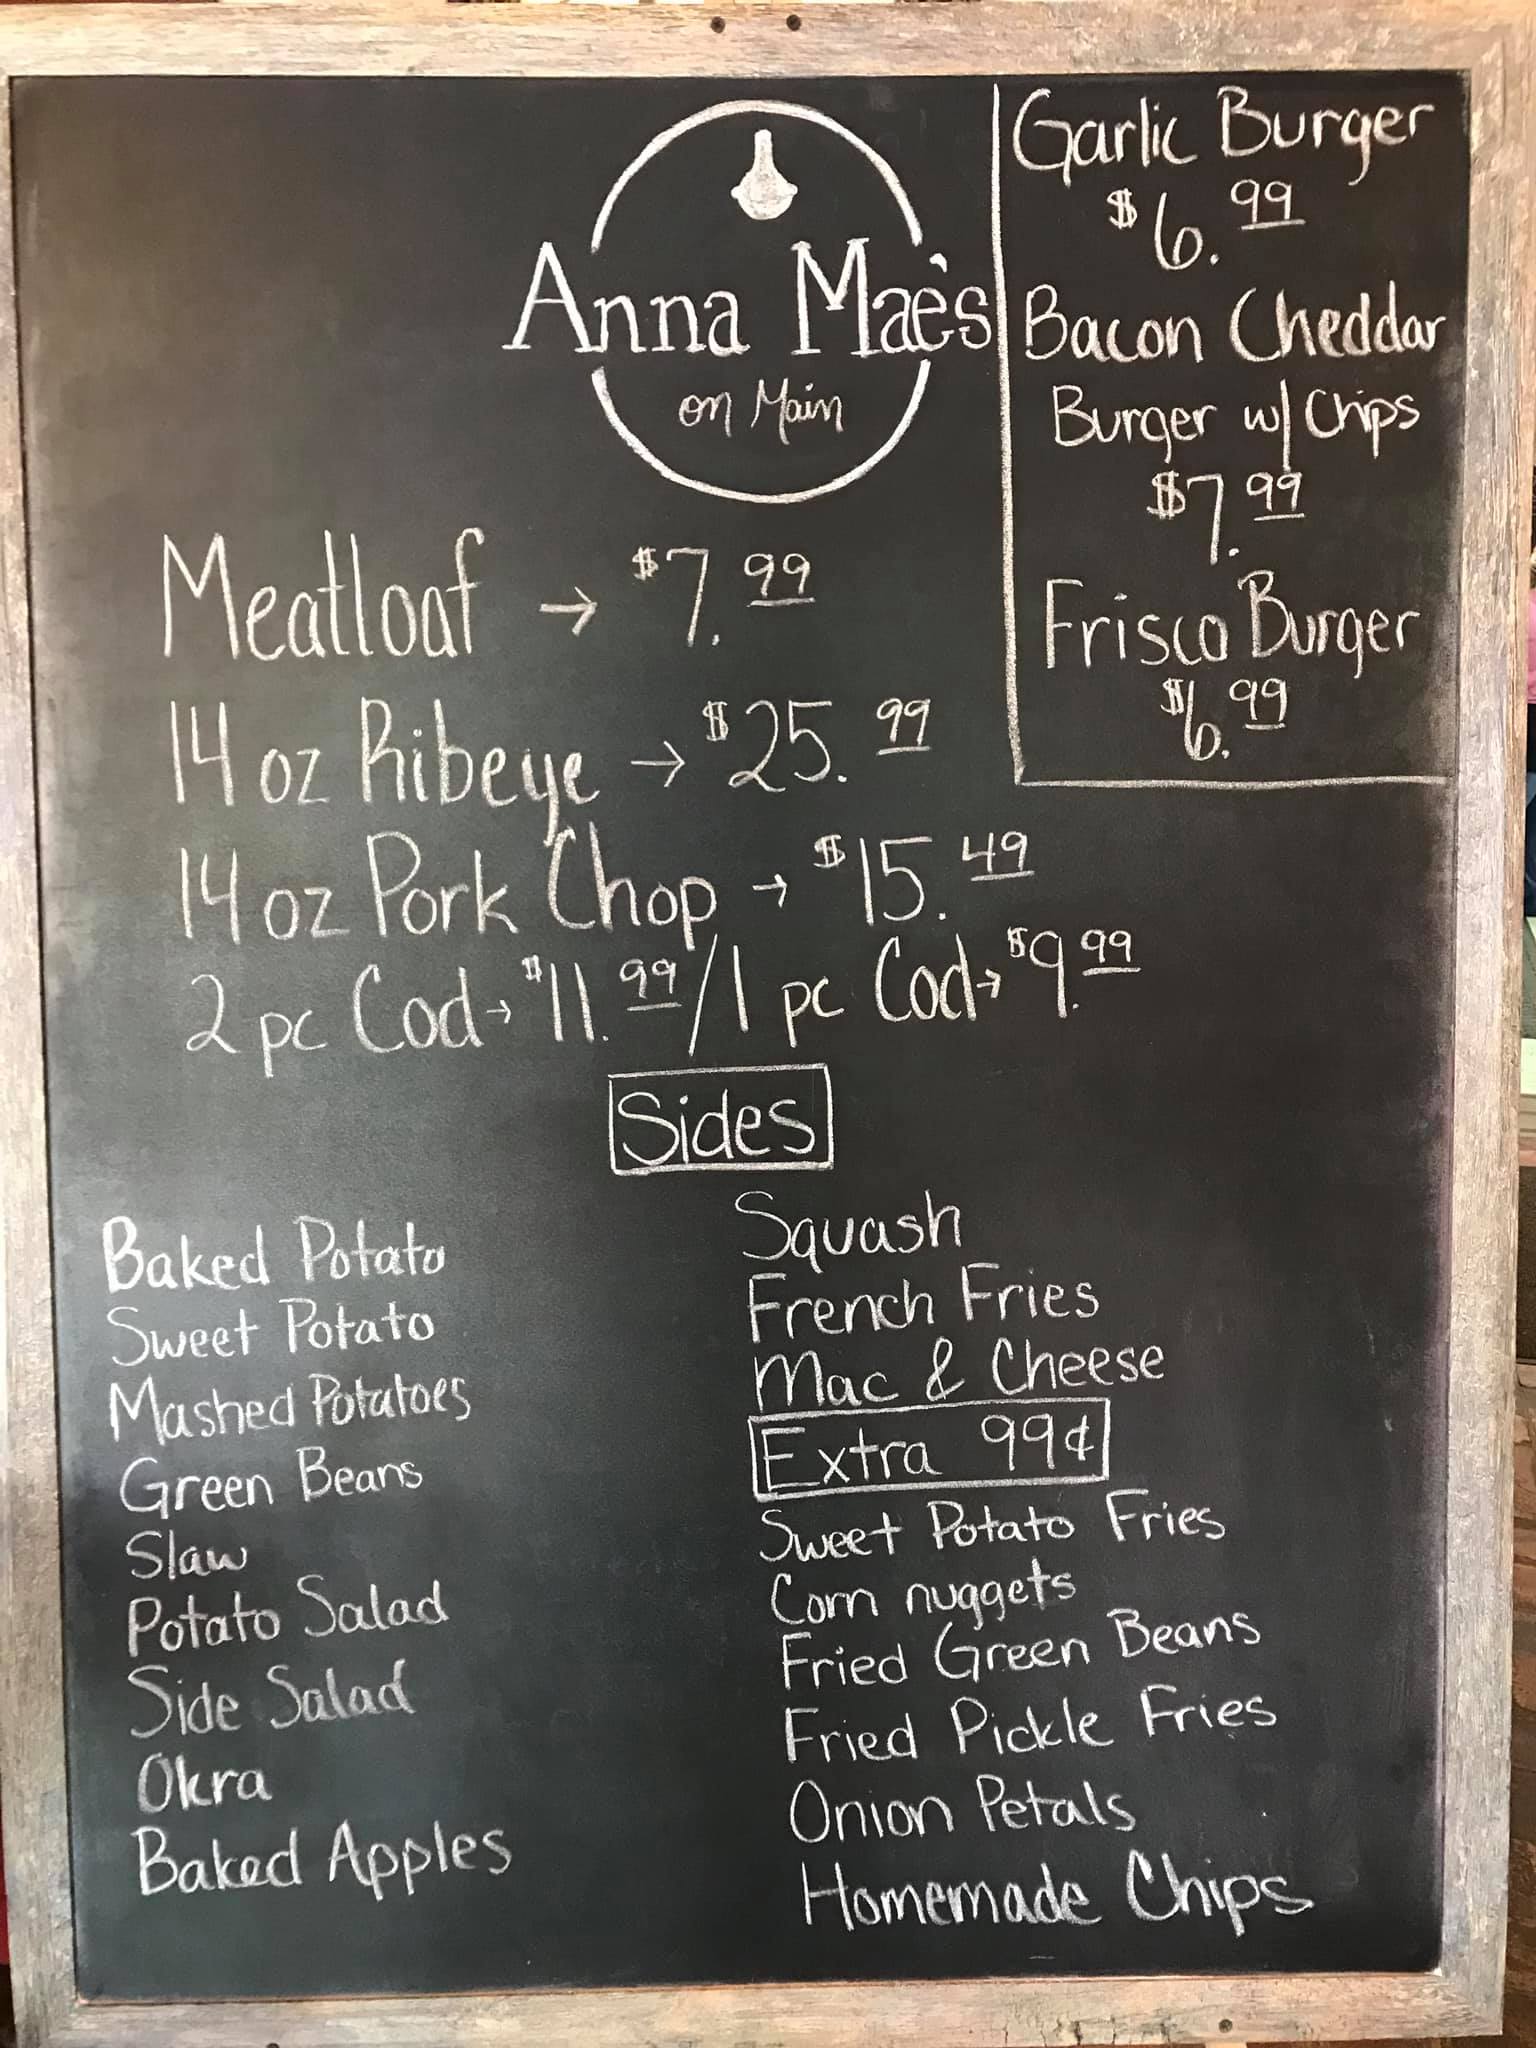 Anna Mae's
on Main
Garlic Burger
$6.99
Bacon Cheddar
Burger w/ Chips
$7.99
Frisco Burger
$6.99
Meatloaf → $7.99
14 oz Ribeye → $25.99
14 oz Pork Chop → $15.49
2 pc Cod → $11.99 / 1 pc Cod → $9.99
Sides
Baked Potato
Sweet Potato
Mashed Potatoes
Green Beans
Slaw
Potato Salad
Side Salad
Okra
Baked Apples
Squash
French Fries
Mac & Cheese
Extra 99¢
Sweet Potato Fries
Corn nuggets
Fried Green Beans
Fried Pickle Fries
Onion Petals
Homemade Chips